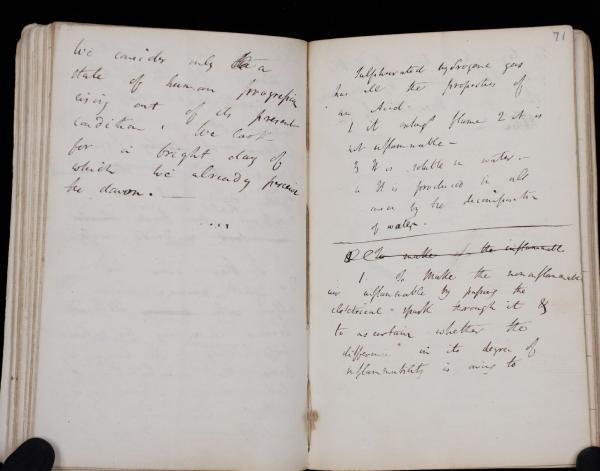 We consider only a
state of human progression
rising out of its present
condition. We look
for a bright day of
which we already perceive
the dawn.
71
Sulphurated hydrogene gas
has all the properties of
an Acid.
1 it exting flame 2 it is
not inflammable -
3 It is soluble in water -
4 It is produced in all
cases by the decomposition
of water.
To make the inflammable
1. To Make the noninflammable
air inflammable by passing the
electrical spark through it &
to ascertain whether the
difference in its degree of
inflammability is owing to